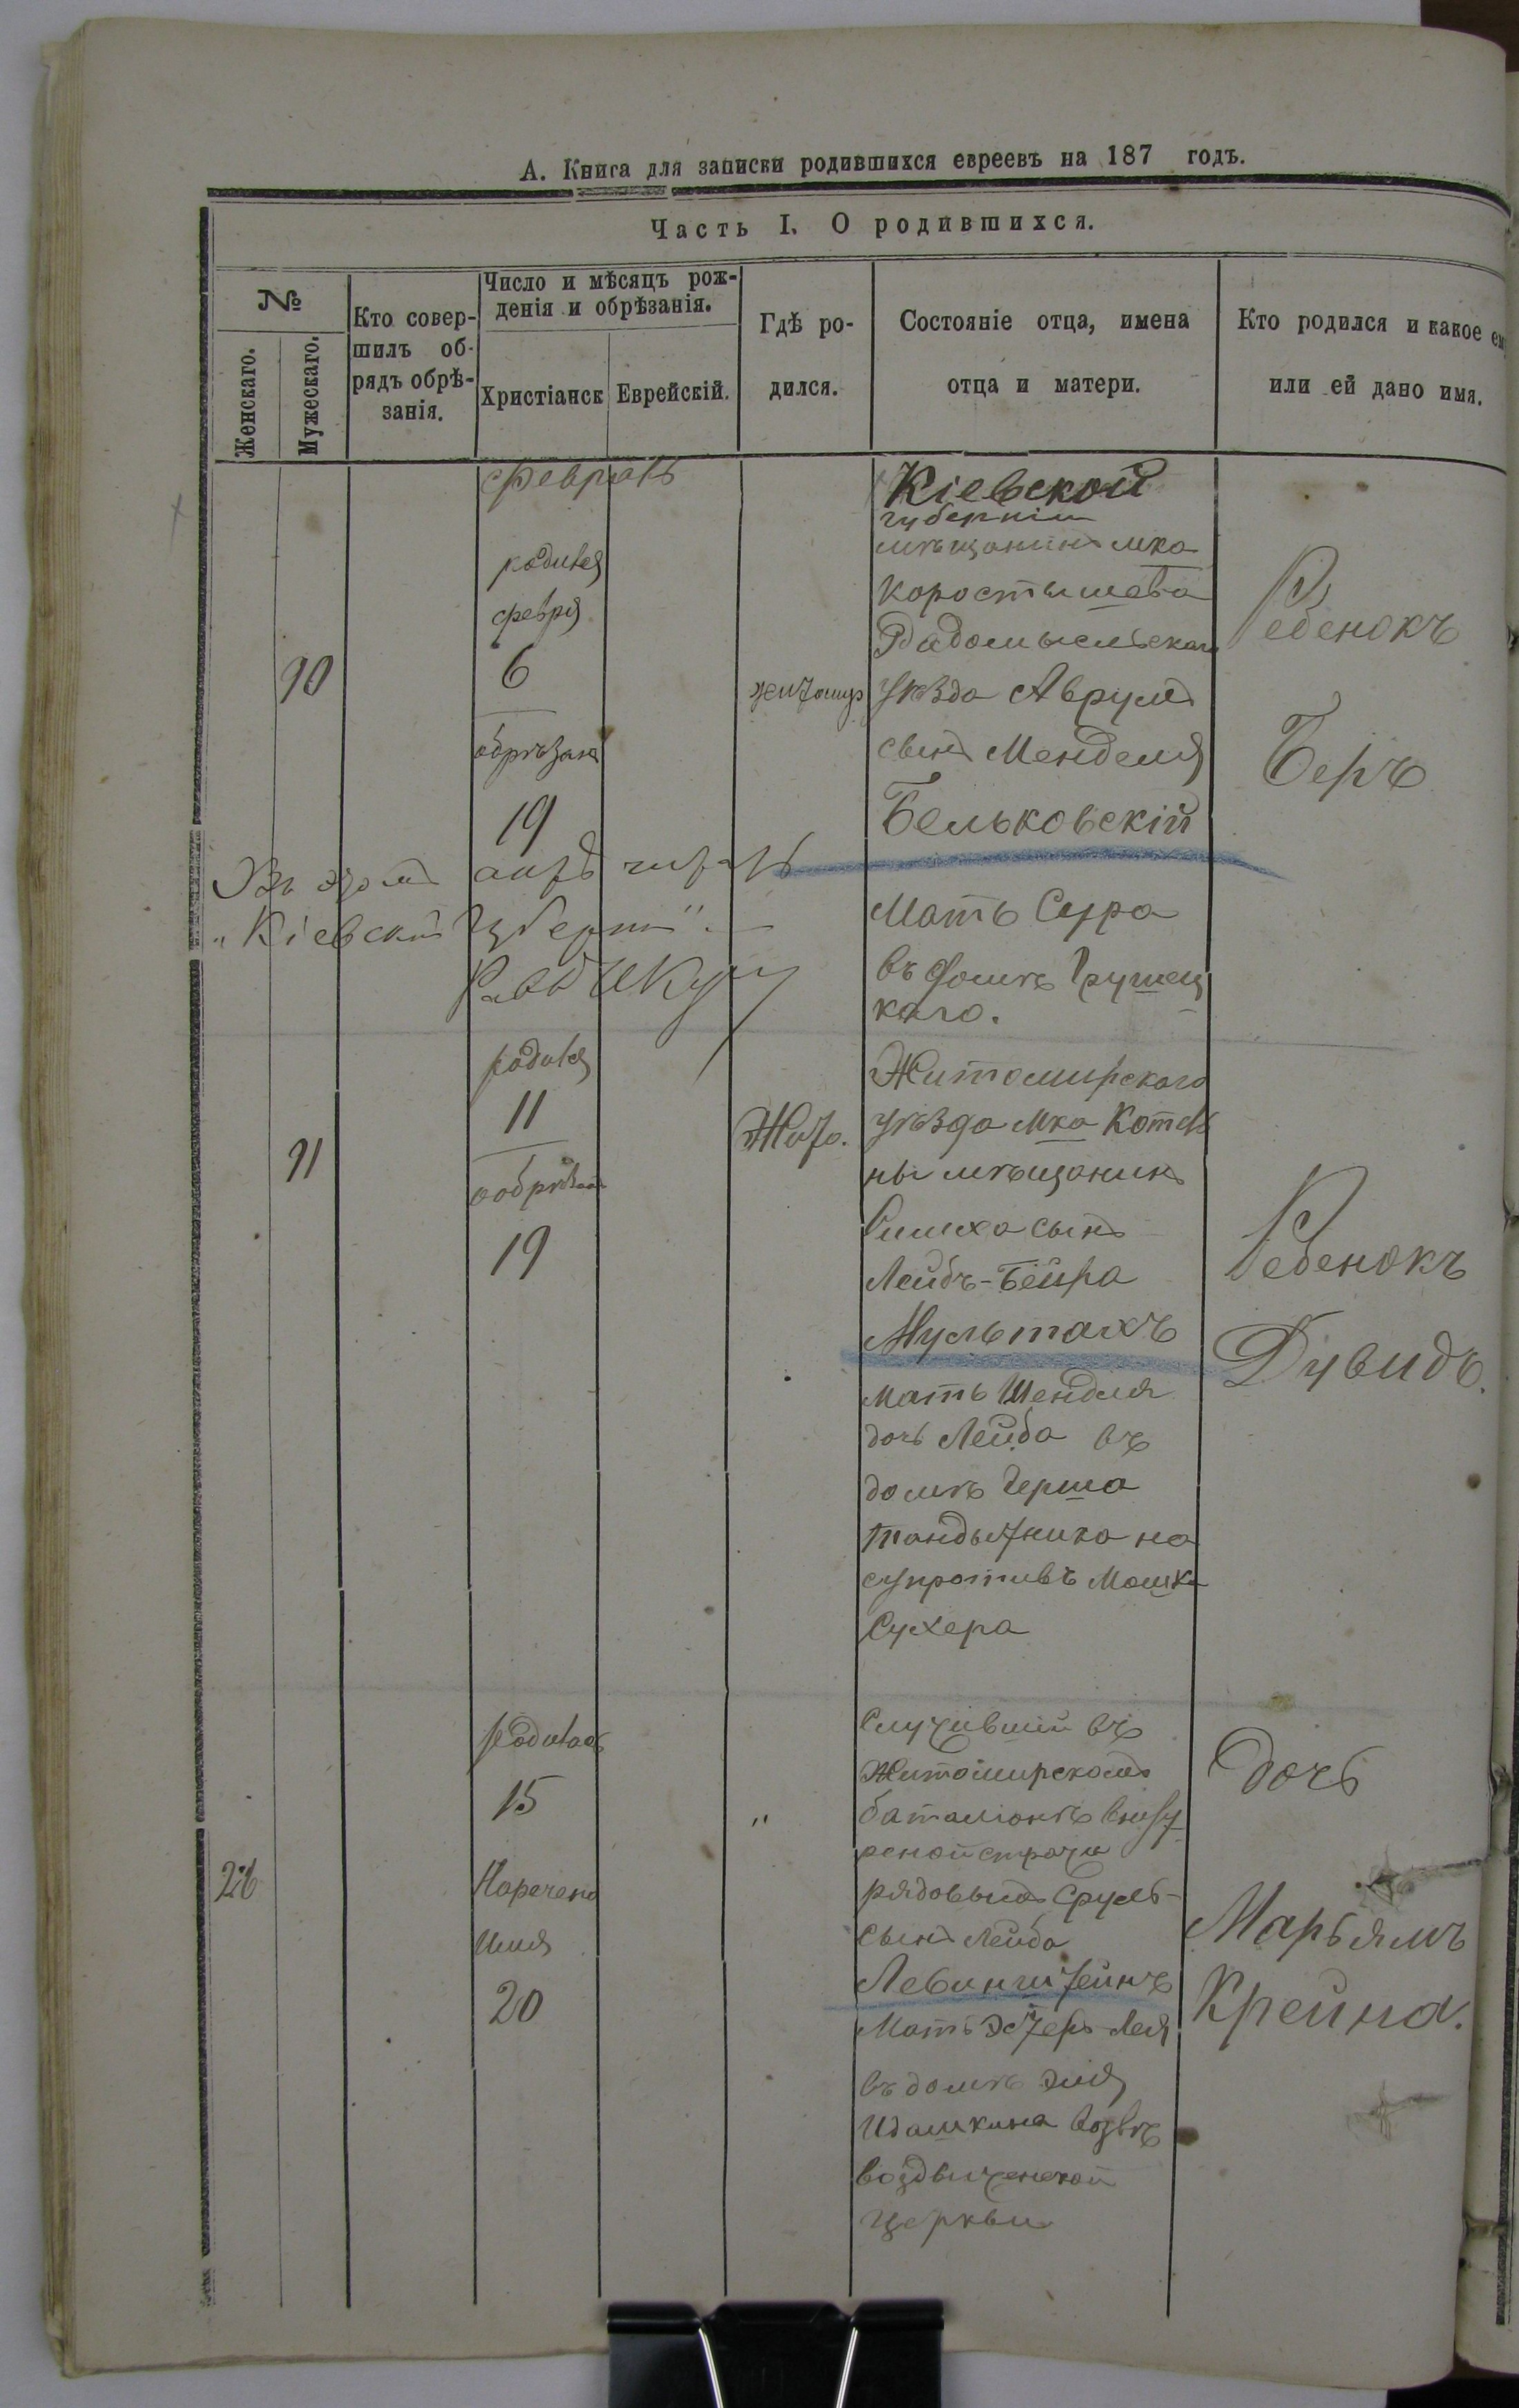 А. Книга для записки родившихся евреевъ на 187 годъ.
Часть I. О родившихся.
№
Женскаго.
Мужескаго.
Кто совер-
шилъ об-
рядъ обрѣ-
занія.
Число и мѣсяцъ рож-
денія и обрѣзанія.
Христіанск
Еврейскій.
Гдѣ ро-
дился.
Состояніе отца, имена
отца и матери.
Кто родился и какое ем
или ей дано имя.
февраль
90
родился
февря
6
обрѣзан
19
Житомир
Кіевской
губерніи
мѣщанинъ мка
Коростышева
Радомысльскаго
уѣзда Аврумъ
сынъ Менделя
Бельковскій
Мать Сура
въ домѣ Грушец
каго.
Ребенокъ
Беръ
Въ этомъ актѣ читать
"Кіевской Губерніи".
91
родился
11
обрѣзан
19
Жито.
Житомирскаго
уѣзда Мка Котель
ны мѣщанинъ
Симха сынъ
Лейбъ-Бейра
Мультахъ
Мать Шендля
дочь Лейба въ
домѣ Герша
Тандытника на
супротивъ Мошка
Сухера
Ребенокъ
Дувидъ.
26
родилась
15
Наречено
имя
20
"
Служившій въ
Житомирскомъ
баталіонѣ Внут
реной стражи
рядовымъ Сруль
сынъ Лейба
Левинштейнъ
Мать Эстеръ-Лея
въ домѣ Эля
Идашкина возлѣ
воздвиженской
церкви
Дочь
Марьямъ
Крейна.